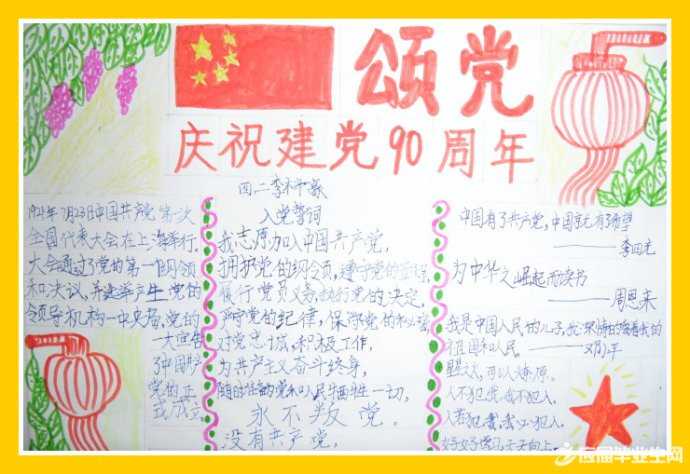 颂党
庆祝建党90周年
四二
入党誓词
1921年7月23日中国共产党第一次
全国代表大会在上海举行,
大会通过了党的第一个纲领
和决议,并选举产生党的
领导机构—中央局,党的
一大宣告
了中国共产
党的正
式成立
我志愿加入中国共产党,
拥护党的纲领,遵守党的章程,
履行党员义务,执行党的决定,
严守党的纪律,保守党的秘密,
对党忠诚,积极工作,
为共产主义奋斗终身,
随时准备为党和人民牺牲一切,
永不叛党。
没有共产党,
中国有了共产党,中国就有了希望
——李四光
为中华之崛起而读书
——周恩来
我是中国人民的儿子,我深情的爱着我的
祖国和人民。——邓小平
星星之火,可以燎原。
人不犯我,我不犯人,
人若犯我,我必犯人,
好好学习,天天向上
应届毕业生网